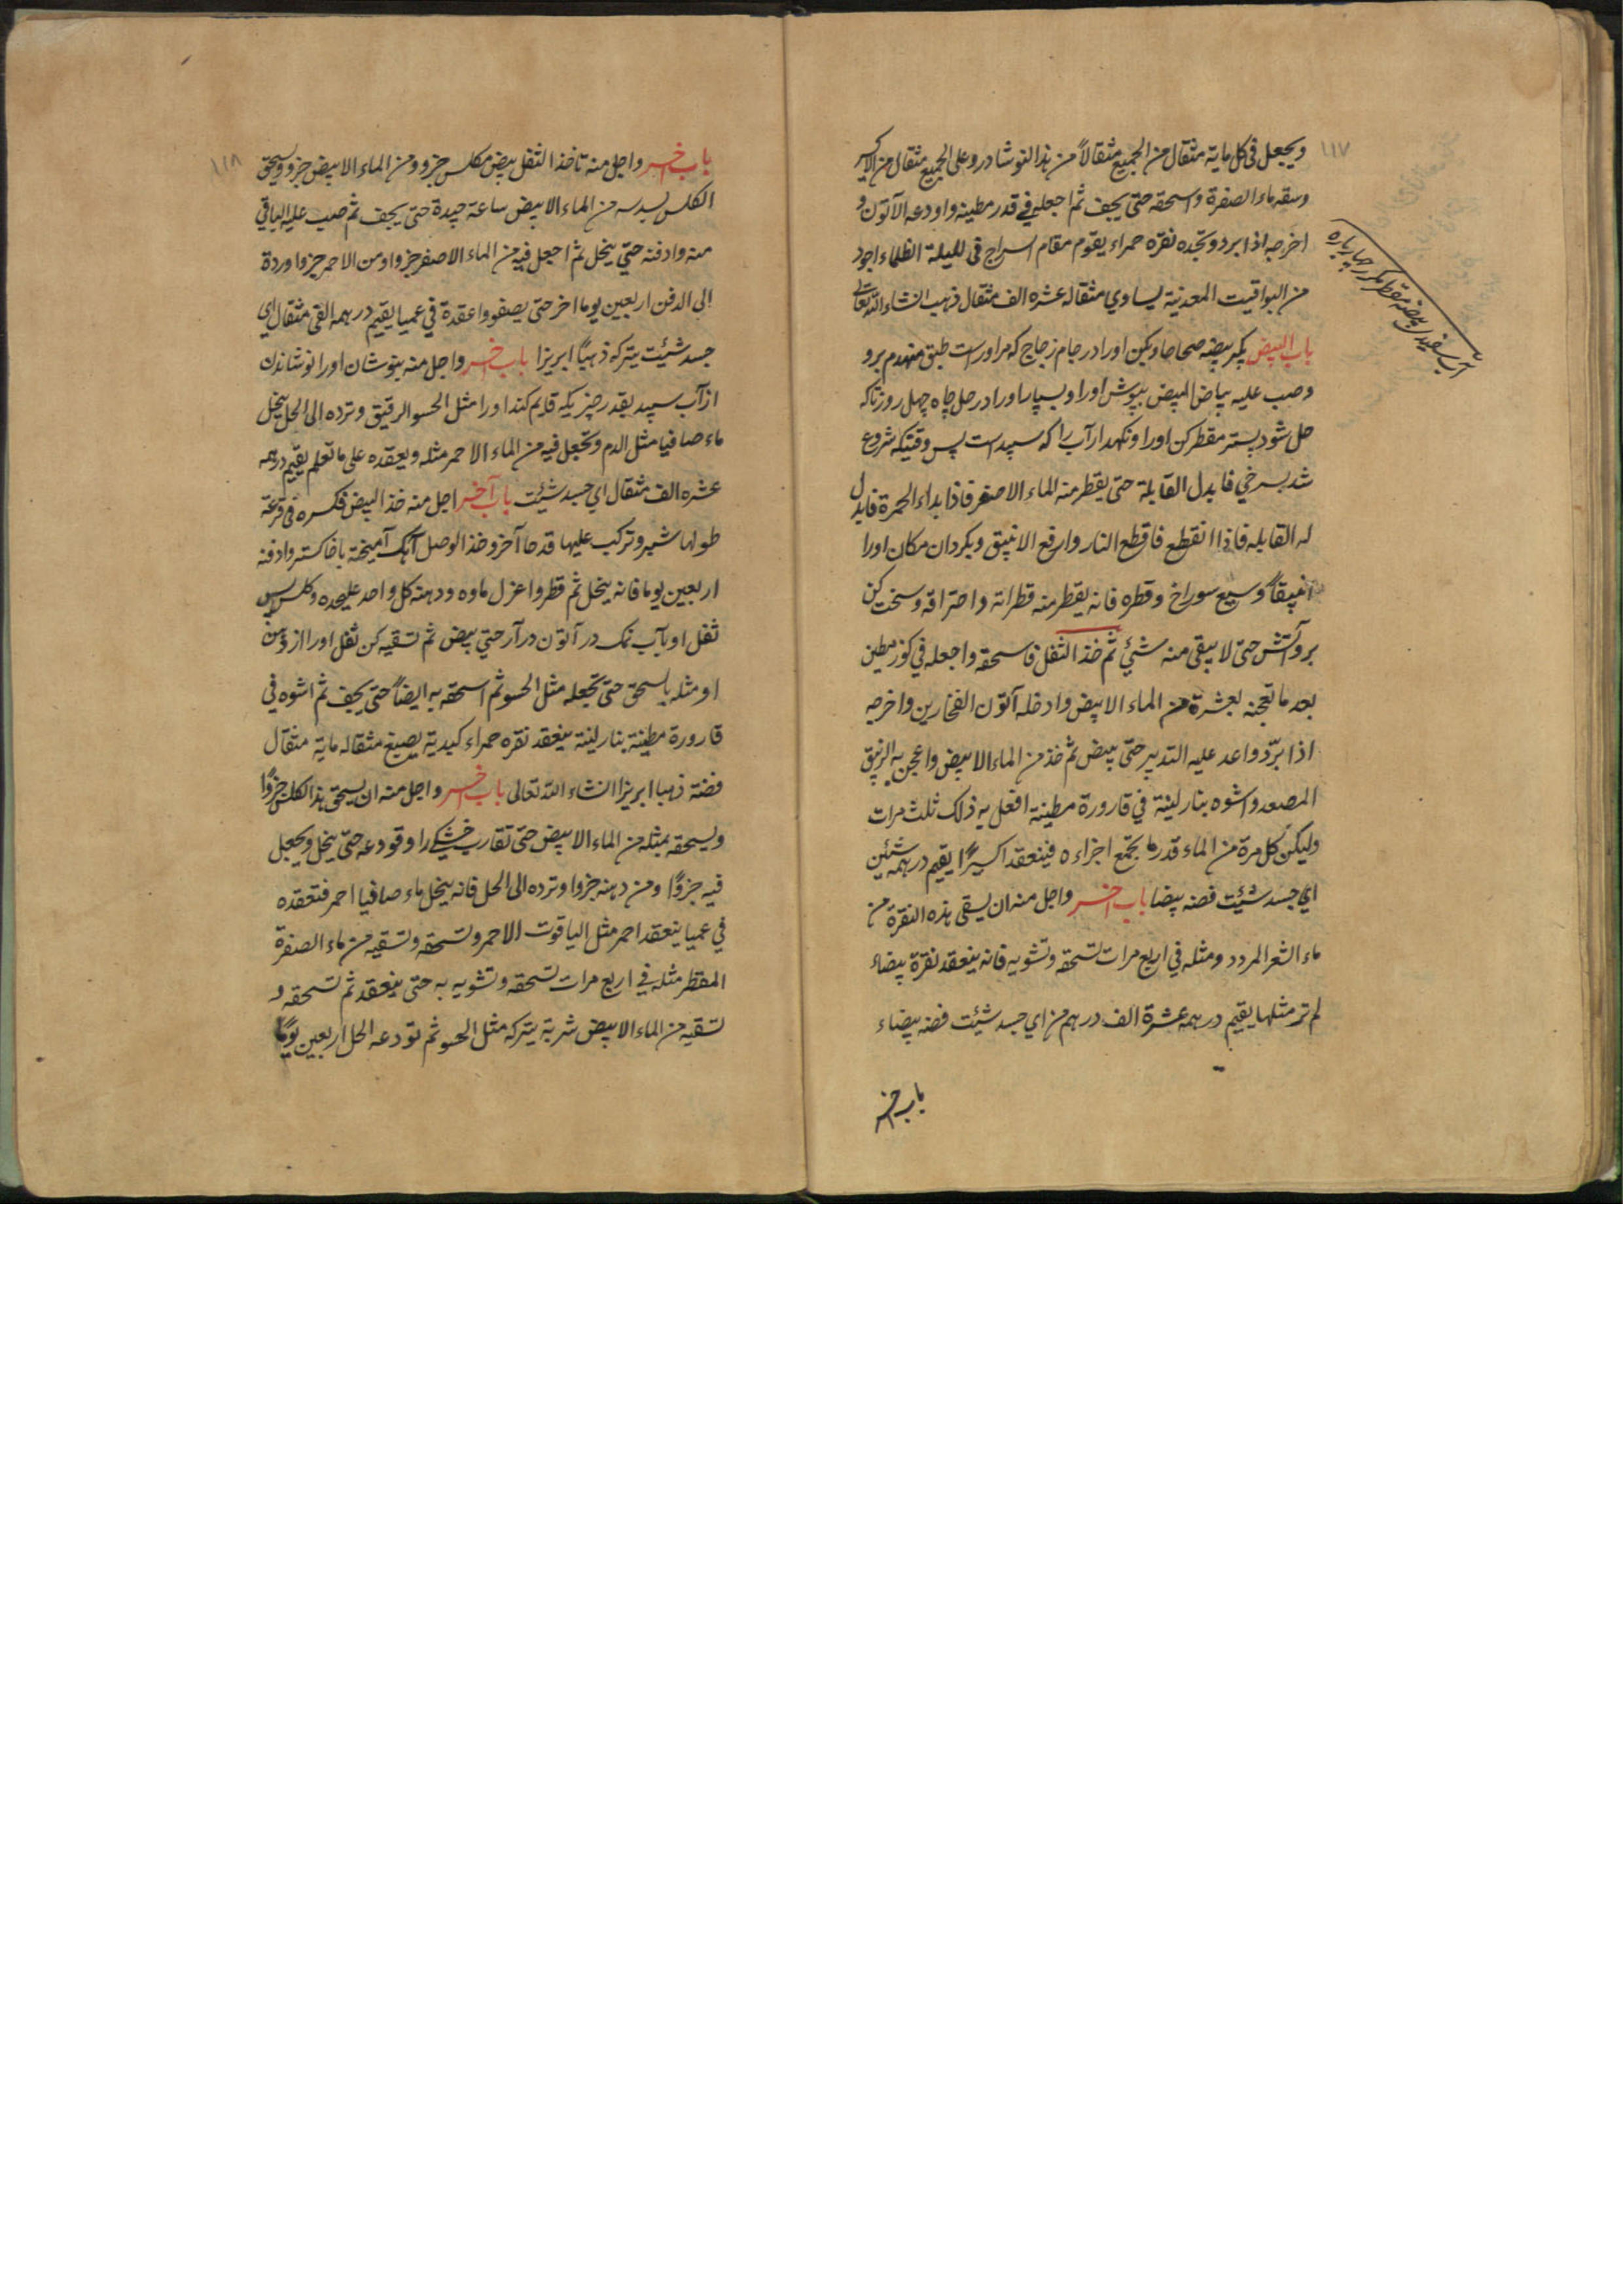 ١١٧
ويجعل في كل ماية مثقال من الجميع مثقالاً من هذا النوشادر وعلى الجميع مثقال من الاكسير
وسقه ماء الصفرة واسحقه حتى يجف ثم اجعله في قدر مطينه واودعه الآتون و
اخرجه اذا برد وتجده نقره حمراء يقوم مقام السراج في لليلة الظلماء اجود
من اليواقيت المعدنية يساوي مثقاله عشره الف مثقال ذهب انشاء الله تعالى
باب البيض بكير بيضه صحاحا وبكن اورا در جام زجاج كه مر اوراست طبق منهدم برو
وصب عليه بياض البيض بپوش اورا وبسپار اورا در حل چاه چهل روز تاكه
حل شود پستر مقطر كن اورا ونكهدار آب را كه سپيد است پس وقتيكه شروع
شد بسرخي فابدل القابلة حتى يقطر منه الماء الاصفر فاذا بداء الحمرة فابدل
له القابله فاذا انقطع فاقطع النار وارفع الانبيق وبكردان مكان اورا
انبيقاً وسيع سوراخ وقطره فانه يقطر منه قطراته واحتراقه وسخت كن
برو آتش حتى لا يبقى منه شيئ ثم خذ الثفل فاسحقه واجعله في كوز مطين
بعد ما تعجنه بعشرة من الماء الابيض وادخله آتون الفخارين واخرجه
اذا برّد واعد عليه التدبير حتى يبيض ثم خذ من الماء الابيض واعجن به الزيبق
المصعد واشوه بنار لينة في قارورة مطينة افعل به ذلك ثلث مرات
وليكن كل مرة من الماء قدر ما يجتمع اجزاءه فينعقد اكسيرًا يقيم درهمه شئين
اي جسد شئت فضه بيضا باب آخر واجل منه ان يسقى هذه النقرة من
ماء الشعر المردد ومثله في اربع مرات تسحقه وتشويه فانه ينعقد نقرة بيضاء
لم تر مثلها يقيم درهمه عشرة الف درهم من اي جسد شئت فضه بيضاء
باب آخر
آب سفيدى بيضه مقطر مكرر چهار باره
١١٨
باب آخر واجل منه تاخذ الثفل بيض مكلس جزو ومن الماء الابيض جزو ويسحق
الكلس بسدسه من الماء الابيض ساعة جيدة حتى يجف ثم صب عليه الباقي
منه وادفنه حتى ينحل ثم اجعل فيه من الماء الاصفر جزوا ومن الاحمر جزوا وردة
الى الدفن اربعين يوما اخر حتى يصفو واعقدة في عميا يقيم درهمه الفي مثقال اي
جسد شئت يتركه ذهباً ابريزا باب آخر واجل منه بنوشان اورا نوشاندن
از آب سپيد بقدر چيزيكه قايم كند اورا مثل الحسو الرقيق وترده الى الحل ينحل
ماء صافيا مثل الدم وتجعل فيه من الماء الاحمر مثله ويعقده على ما تعلم يقيم درهمه
عشره الف مثقال اي جسد شئت باب آخر اجل منه خذ البيض فكسره في قرعة
طولها شبر وتركب عليها قدحا آخر وخذ الوصل آهك آميخته با خاكستر وادفنه
اربعين يوما فانه ينحل ثم قطر واعزل ماوه ودهنه كل واحد عليحده وكلس پس
ثفل او بآب نمك در آتون در آر حتي يبيض ثم تسقيه كن ثفل اورا از دهن
او مثله بالسحق حتى تجعله مثل الحسو ثم اسحقه به ايضاً حتى يجف ثم اشوه في
قارورة مطينة بنار لينة ينعقد نقره حمراء كبدية يصبغ مثقاله ماية مثقال
فضة ذهبا ابريزا انشاء الله تعالى باب آخر واجل منه ان يسحق هذا الكلس جزوًا
ويسحقه بمثله من الماء الابيض حتى تقارب خشكي را وتودعه حتى ينحل ويجعل
فيه جزوًا ومن دهنه جزوا وترده الى الحل فانه ينحل ماء صافيا احمر فتعقده
في عميا ينعقد احمر مثل الياقوت الاحمر وتسحقه وتسقيه من ماء الصفرة
المقطر مثله في اربع مرات تسحقه وتشويه به حتى ينعقد ثم تسحقه و
تسقيه من الماء الابيض شربة يتركه مثل الحسو ثم تودعه الحل اربعين يوماً